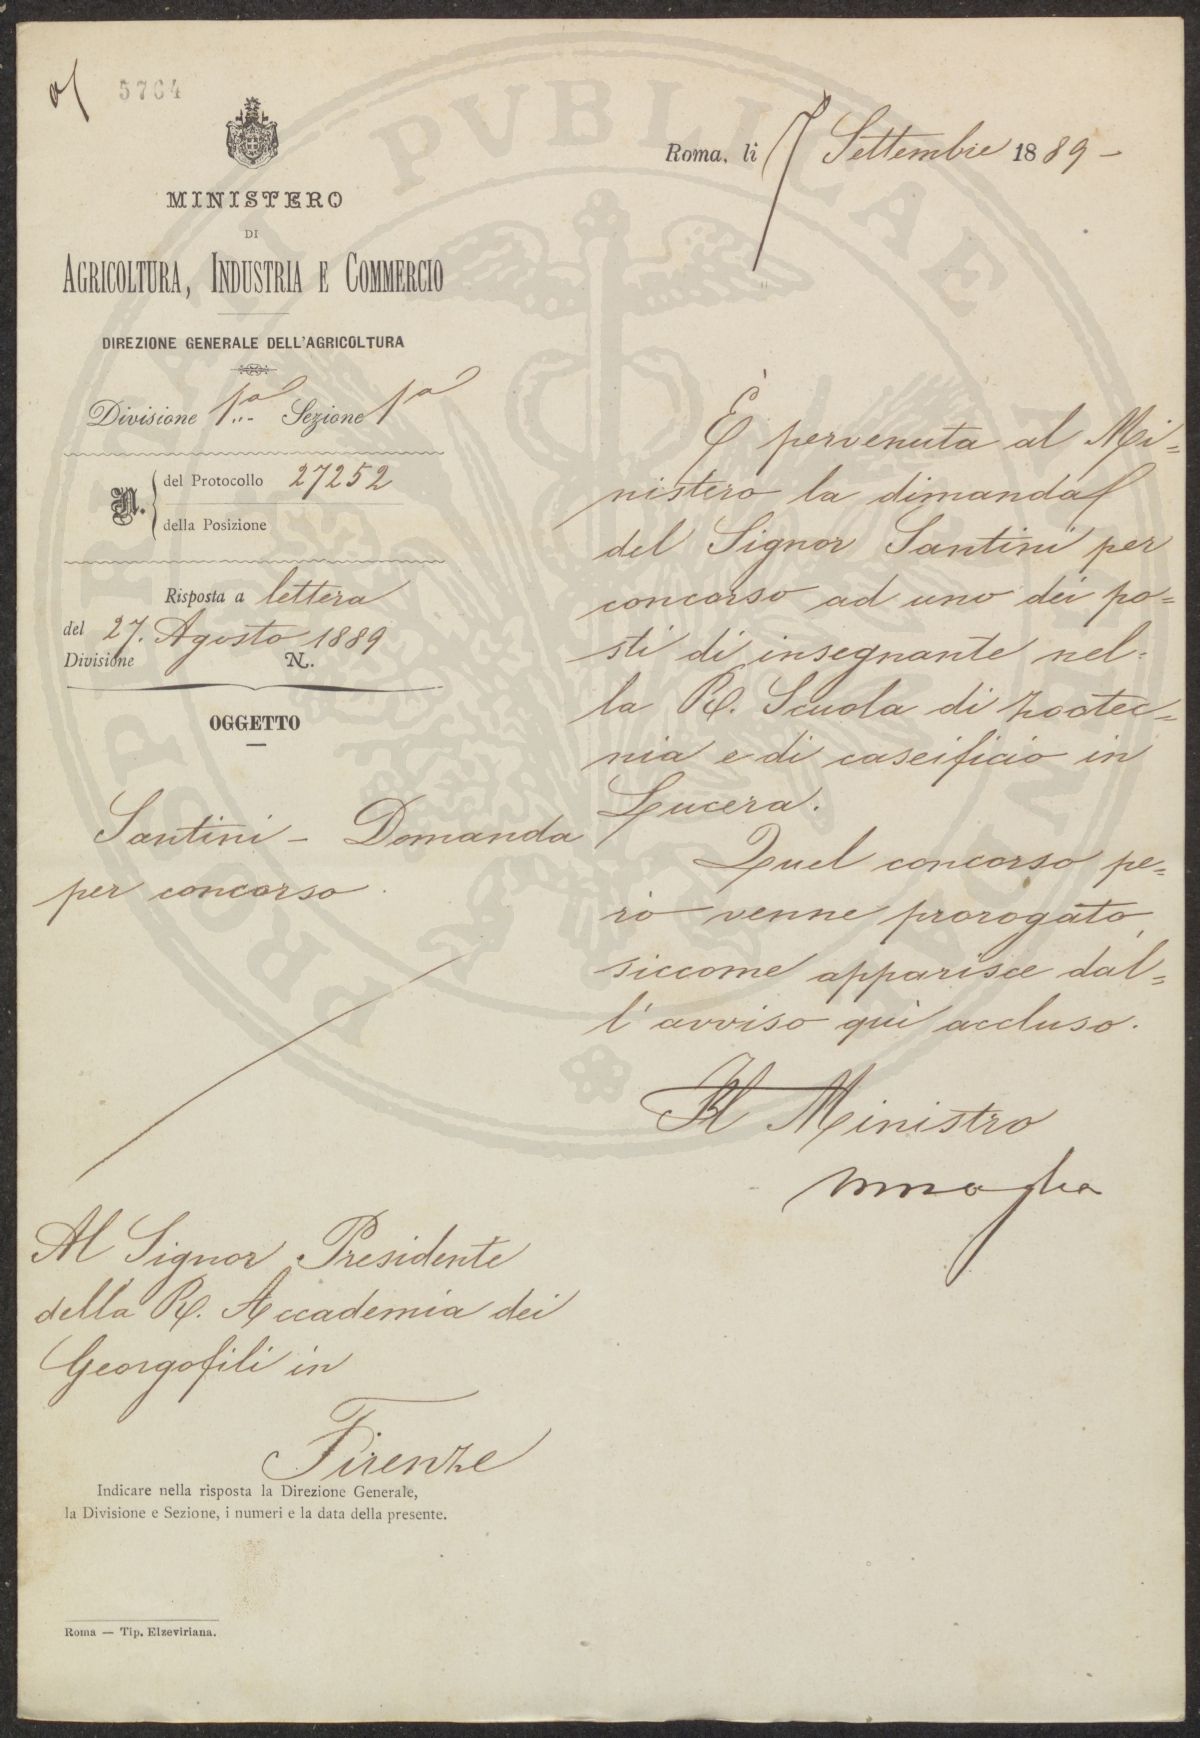 5764
MINISTERO
DI
AGRICOLTURA, INDUSTRIA E COMMERCIO
DIREZIONE GENERALE DELL'AGRICOLTURA
Divisione 1ª Sezione 1ª
N. del Protocollo 27252
della Posizione
Risposta a lettera
del 27. Agosto 1889
Divisione N.
OGGETTO
Santini - Domanda
per concorso.
Roma, li 7 Settembre 1889 -
È pervenuta al Mi=
nistero la dimanda
del Signor Santini per
concorso ad uno dei po=
sti di insegnante nel-
la R. Scuola di zootec=
nia e di caseificio in
Lucera.
Quel concorso pe=
rò venne prorogato,
siccome apparisce dal=
l'avviso qui accluso.
Il Ministro
Al Signor Presidente
della R. Accademia dei
Georgofili in
Firenze
Indicare nella risposta la Direzione Generale,
la Divisione e Sezione, i numeri e la data della presente.
Roma — Tip. Elzeviriana.
PROSPERITATI PVBLICAE